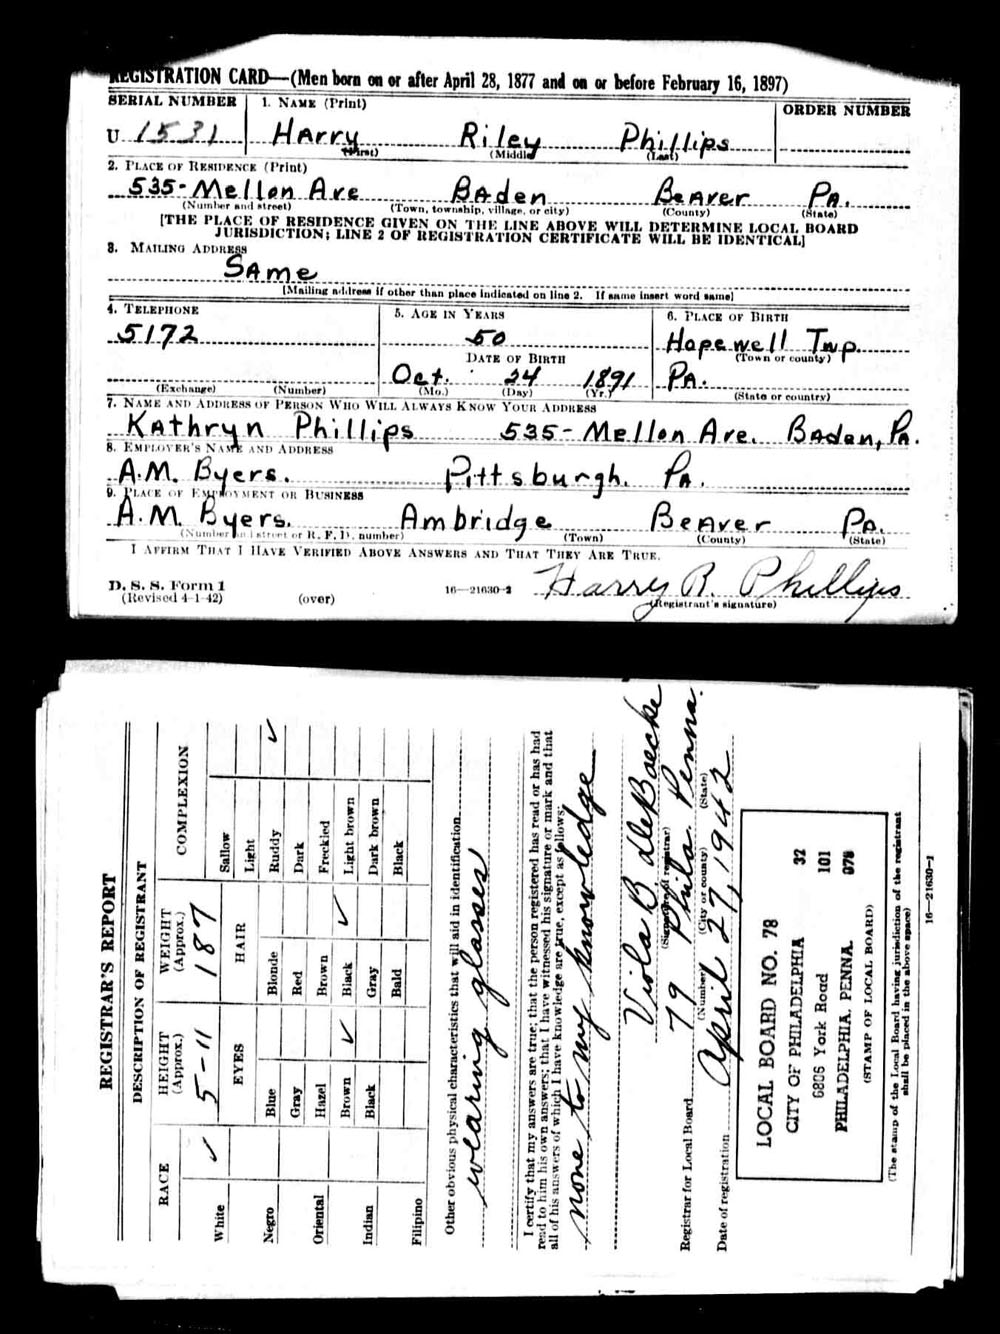 REGISTRATION CARD—(Men born on or after April 28, 1877 and on or before February 16, 1897)
SERIAL NUMBER 1. NAME (Print) ORDER NUMBER
U 1531 Harry Riley Phillips
(First) (Middle) (Last)
2. PLACE OF RESIDENCE (Print)
535- Mellon Ave Baden Beaver Pa.
(Number and street) (Town, township, village, or city) (County) (State)
[THE PLACE OF RESIDENCE GIVEN ON THE LINE ABOVE WILL DETERMINE LOCAL BOARD
JURISDICTION; LINE 2 OF REGISTRATION CERTIFICATE WILL BE IDENTICAL]
3. MAILING ADDRESS
Same
[Mailing address if other than place indicated on line 2. If same insert word same]
4. TELEPHONE 5. AGE IN YEARS 6. PLACE OF BIRTH
5172 50 Hopewell Twp.
DATE OF BIRTH (Town or county)
Oct. 24 1891 Pa.
(Exchange) (Number) (Mo.) (Day) (Yr.) (State or country)
7. NAME AND ADDRESS OF PERSON WHO WILL ALWAYS KNOW YOUR ADDRESS
Kathryn Phillips 535- Mellon Ave. Baden, Pa.
8. EMPLOYER'S NAME AND ADDRESS
A.M. Byers. Pittsburgh. Pa.
9. PLACE OF EMPLOYMENT OR BUSINESS
A.M. Byers. Ambridge Beaver Pa.
(Number and street or R. F. D. number) (Town) (County) (State)
I AFFIRM THAT I HAVE VERIFIED ABOVE ANSWERS AND THAT THEY ARE TRUE.
Harry R. Phillips
D. S. S. Form 1
(Revised 4-1-42) (over) 16—21630-2 (Registrant's signature)
REGISTRAR'S REPORT
DESCRIPTION OF REGISTRANT
RACE HEIGHT (Approx.) WEIGHT (Approx.) COMPLEXION
5-11 187
White ✓ EYES HAIR Sallow
Light
Negro Blue Blonde Ruddy ✓
Gray Red Dark
Oriental Hazel Brown Freckled
Indian Brown ✓ Black ✓ Light brown
Black Gray Dark brown
Filipino Bald Black
Other obvious physical characteristics that will aid in identification
wearing glasses
I certify that my answers are true; that the person registered has read or has had
read to him his own answers; that I have witnessed his signature or mark and that
all of his answers of which I have knowledge are true, except as follows:
none to my knowledge
Viola B. DeBaecke
(Signature of registrar)
Registrar for Local Board 79 Phila Penna.
(Number) (City or county) (State)
Date of registration April 27, 1942
LOCAL BOARD NO. 78 32
CITY OF PHILADELPHIA 101
6806 York Road 078
PHILADELPHIA, PENNA.
(STAMP OF LOCAL BOARD)
(The stamp of the Local Board having jurisdiction of the registrant
shall be placed in the above space)
16—21630-1